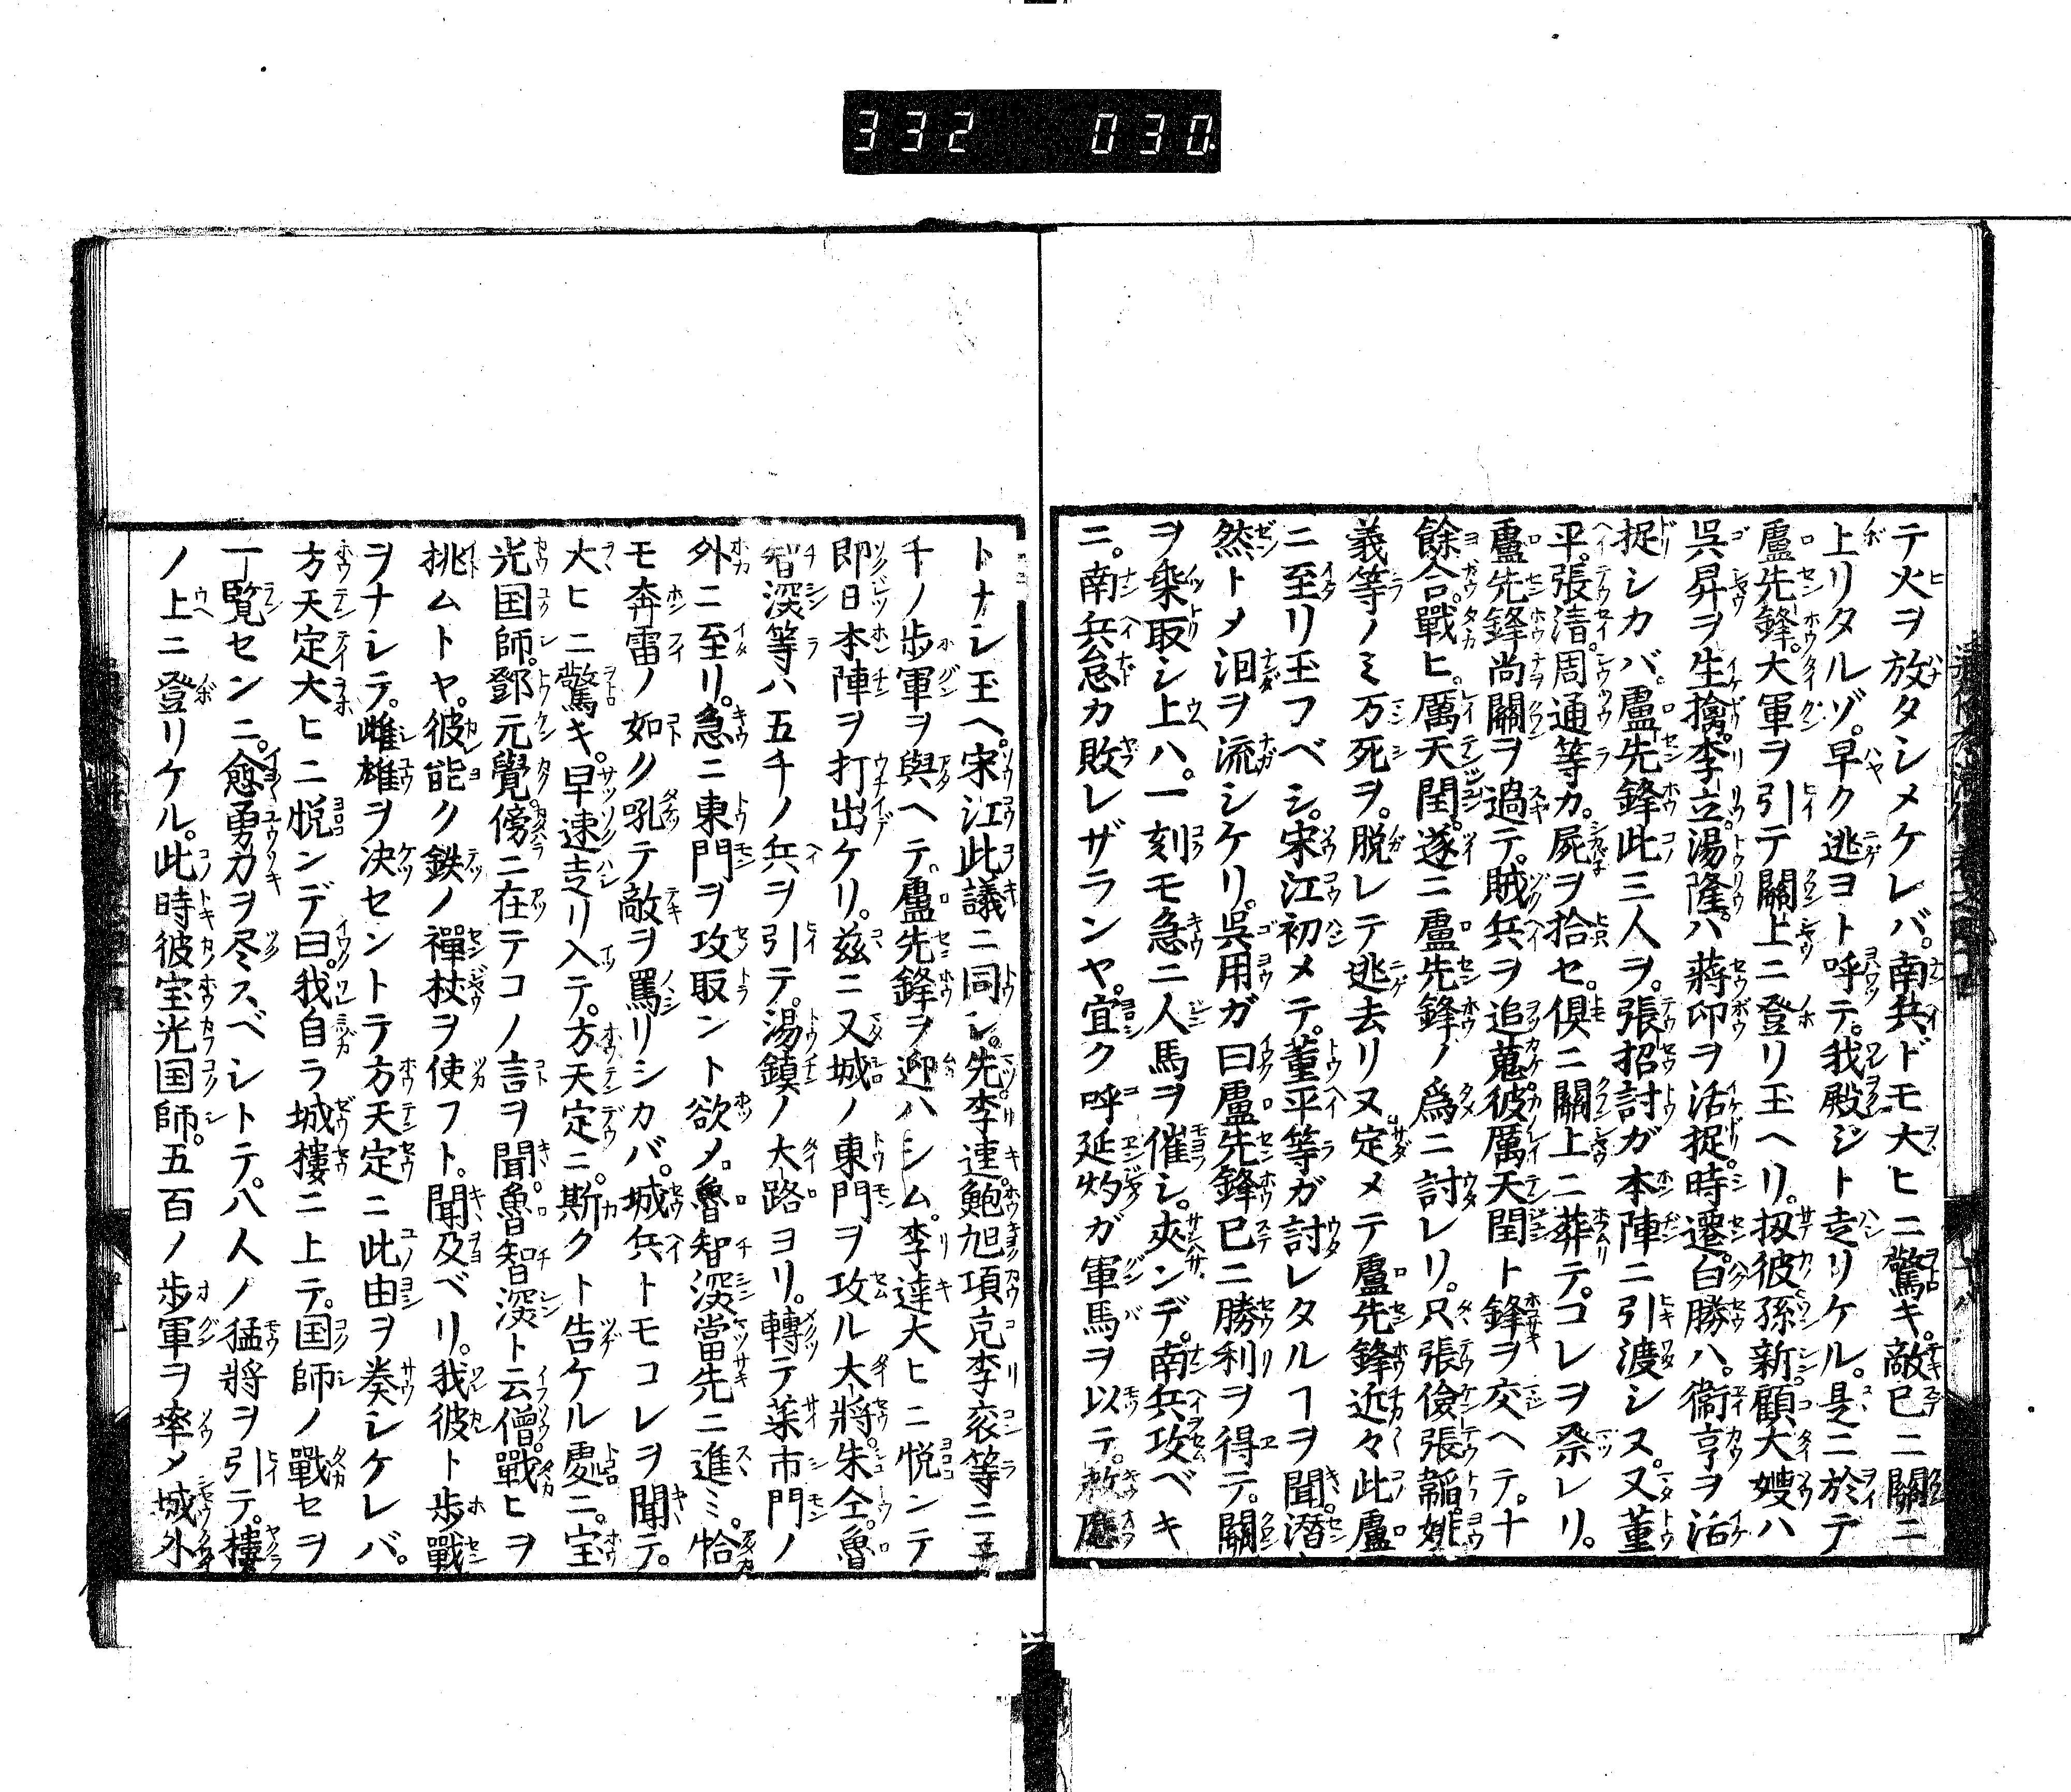 332 030
テ火ヲ放タシメケレバ。南兵ドモ大ヒニ驚キ。敵已ニ關ニ
上リタルゾ。早ク逃ヨト呼テ。我殿ジト走リケル。是ニ於テ
盧先鋒。大軍ヲ引テ關上ニ登リ玉ヘリ。扨彼孫新。顧大嫂ハ
呉昇ヲ生擒。李立。湯隆。ハ蒋印ヲ活捉。時遷。白勝ハ。衞亨ヲ活
捉シカバ。盧先鋒此三人ヲ。張招討ガ本陣ニ引渡シヌ。又董
平。張清。周通等カ。屍ヲ拾セ。倶ニ關上ニ葬テ。コレヲ祭レリ。
盧先鋒尚關ヲ過テ。賊兵ヲ追蒐。彼厲天閏ト鋒ヲ交ヘテ。十
餘合。戰ヒ。厲天閏。遂ニ盧先鋒ノ爲ニ討レリ。只張儉張韜姚
義等ノミ万死ヲ。脱レテ逃去リヌ定メテ盧先鋒近々此
ニ至リ玉フベシ。宋江初メテ。董平等ガ討レタルヿヲ聞。潜
然トメ泪ヲ流シケリ。呉用ガ曰盧先鋒已ニ勝利ヲ得テ。關
ヲ乗取シ上ハ。一刻モ急ニ人馬ヲ催シ。夾ンデ。南兵攻ベキ
ニ。南兵怠カ敗レザランヤ。宜ク呼延灼ガ軍馬ヲ以テ。救應
トナシ玉ヘ。宋江此議ニ同シ。先李逵。鮑旭項充李袞等ニ三
千ノ歩軍ヲ與ヘテ。盧先鋒ヲ迎ハシム。李逵大ヒニ悦ンテ
即日本陣ヲ打出ケリ。茲ニ又城ノ東門ヲ攻ル大將。朱仝。魯
智深等ハ五千ノ兵ヲ引テ。湯鎮ノ大路ヨリ。轉テ菜市門ノ
外ニ至リ。急ニ東門ヲ攻取ント欲メ。魯智深當先ニ進ミ。恰
モ奔雷ノ如ク吼テ敵ヲ罵リシカバ。城兵トモコレヲ聞テ。
大ヒニ驚キ。早速走リ入テ。方天定ニ。斯クト告ケル處ニ。宝
光国師。鄧元覺。傍ニ在テコノ言ヲ聞。魯智深ト云僧。戰ヒヲ
挑ムトヤ。彼能ク鉄ノ禪杖ヲ使フト。聞及ベリ。我彼ト歩戰
ヲナレテ。雌雄ヲ决セントテ方天定ニ此由ヲ奏シケレバ。
方天定大ヒニ悦ンデ曰。我自ラ城樓ニ上テ。国師ノ戰セヲ
一覧センニ。愈勇力ヲ尽スベシトテ。八人ノ猛將ヲ引テ。樓
ノ上ニ登リケル。此時彼宝光国師。五百ノ歩軍ヲ率メ城外